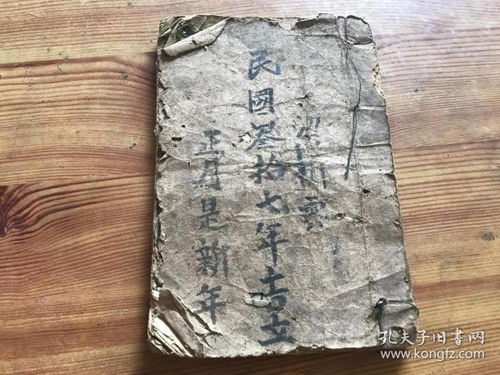 新雲
民國叁拾七年吉立
正月是新年
孔夫子旧书网
www.kongfz.com